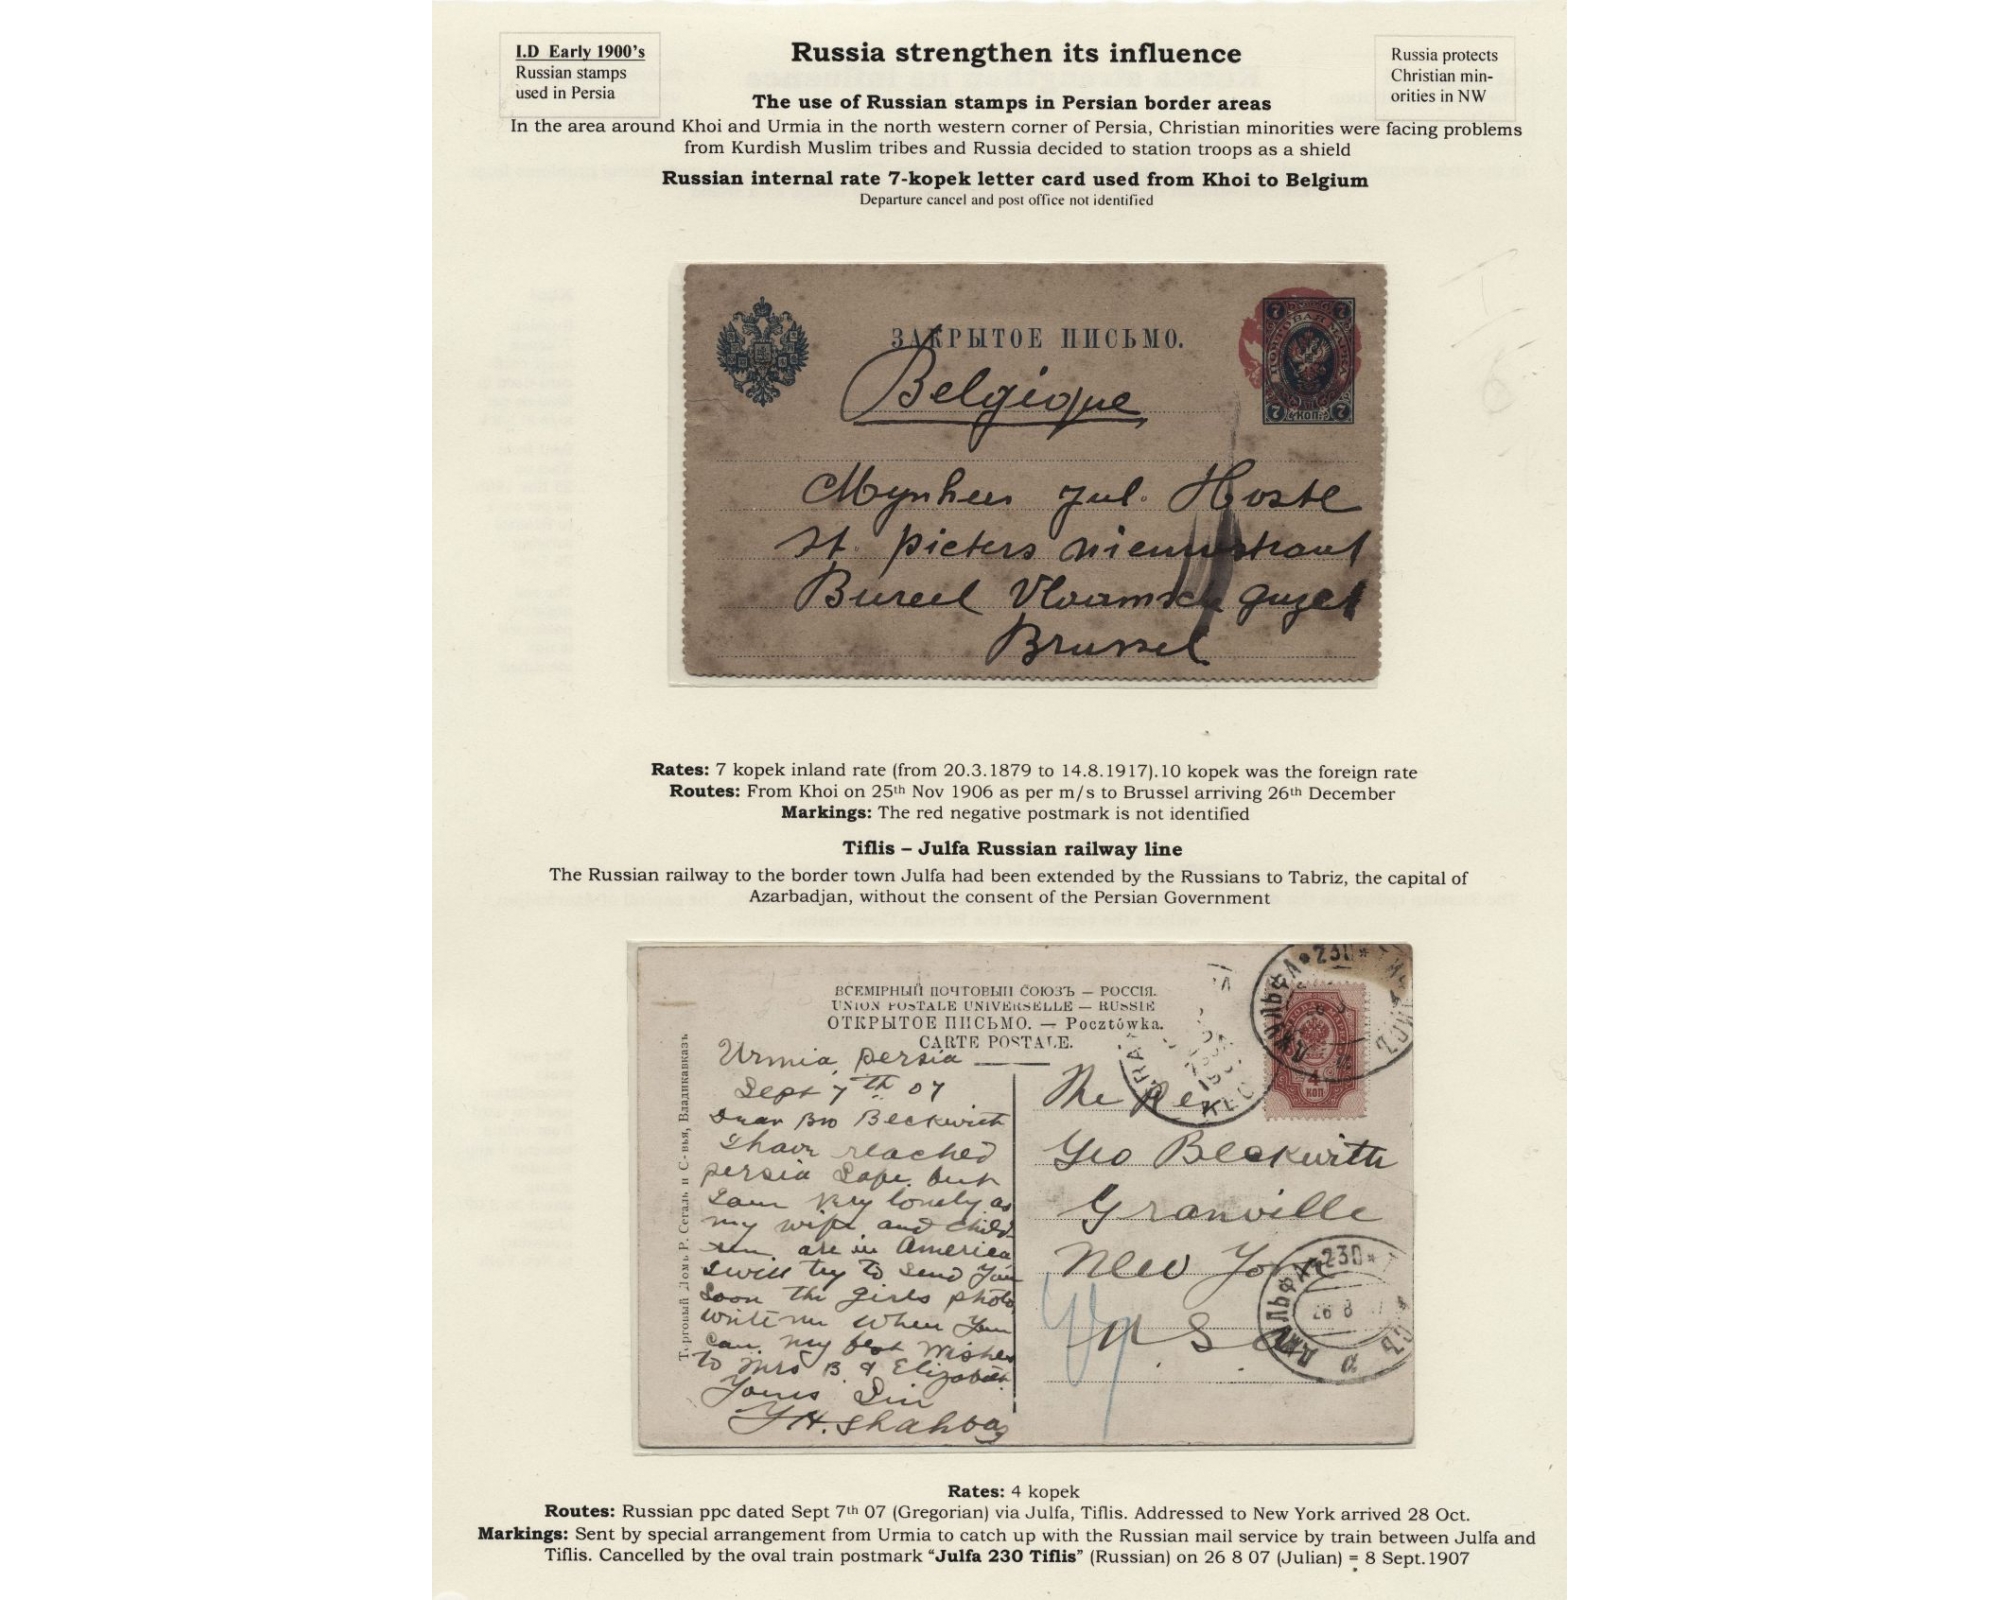 I.D Early 1900's
Russian stamps
used in Persia
Russia strengthen its influence
Russia protects
Christian min-
orities in NW
The use of Russian stamps in Persian border areas
In the area around Khoi and Urmia in the north western corner of Persia, Christian minorities were facing problems
from Kurdish Muslim tribes and Russia decided to station troops as a shield
Russian internal rate 7-kopek letter card used from Khoi to Belgium
Departure cancel and post office not identified
ЗАКРЫТОЕ ПИСЬМО.
7 7
ПОЧТОВАЯ МАРКА
7 КОП. 7
Belgique
Mynheer Jul. Hoste
St. Pieters nieuwstraat
Bureel Vlaamsche gazet
Brussel
Rates: 7 kopek inland rate (from 20.3.1879 to 14.8.1917).10 kopek was the foreign rate
Routes: From Khoi on 25th Nov 1906 as per m/s to Brussel arriving 26th December
Markings: The red negative postmark is not identified
Tiflis – Julfa Russian railway line
The Russian railway to the border town Julfa had been extended by the Russians to Tabriz, the capital of
Azarbadjan, without the consent of the Persian Government
ВСЕМІРНЫЙ ПОЧТОВЫЙ СОЮЗЪ — РОССІЯ.
UNION POSTALE UNIVERSELLE — RUSSIE
ОТКРЫТОЕ ПИСЬМО. — Pocztówka.
CARTE POSTALE.
Торговый Домъ Р. Сегаль и С-вья, Владикавказъ
ДЖУЛЬФА * 230 *
4
КОП
Urmia, Persia
Sept 7th 07
Dear Bro Beckwith
I have reached
Persia Safe. but
I am very lonely as
my wife and child
ren are in America
I will try to Send You
Soon the girls photo
write me when You
can. my best wishes
to Mrs B. & Elizabeth
Yours Sin
Y H. Shahbaz
The Rev
Geo Beckwith
Granville
New York
U S A
ДЖУЛЬФА 230 *
26 8
Rates: 4 kopek
Routes: Russian ppc dated Sept 7th 07 (Gregorian) via Julfa, Tiflis. Addressed to New York arrived 28 Oct.
Markings: Sent by special arrangement from Urmia to catch up with the Russian mail service by train between Julfa and
Tiflis. Cancelled by the oval train postmark “Julfa 230 Tiflis” (Russian) on 26 8 07 (Julian) = 8 Sept.1907